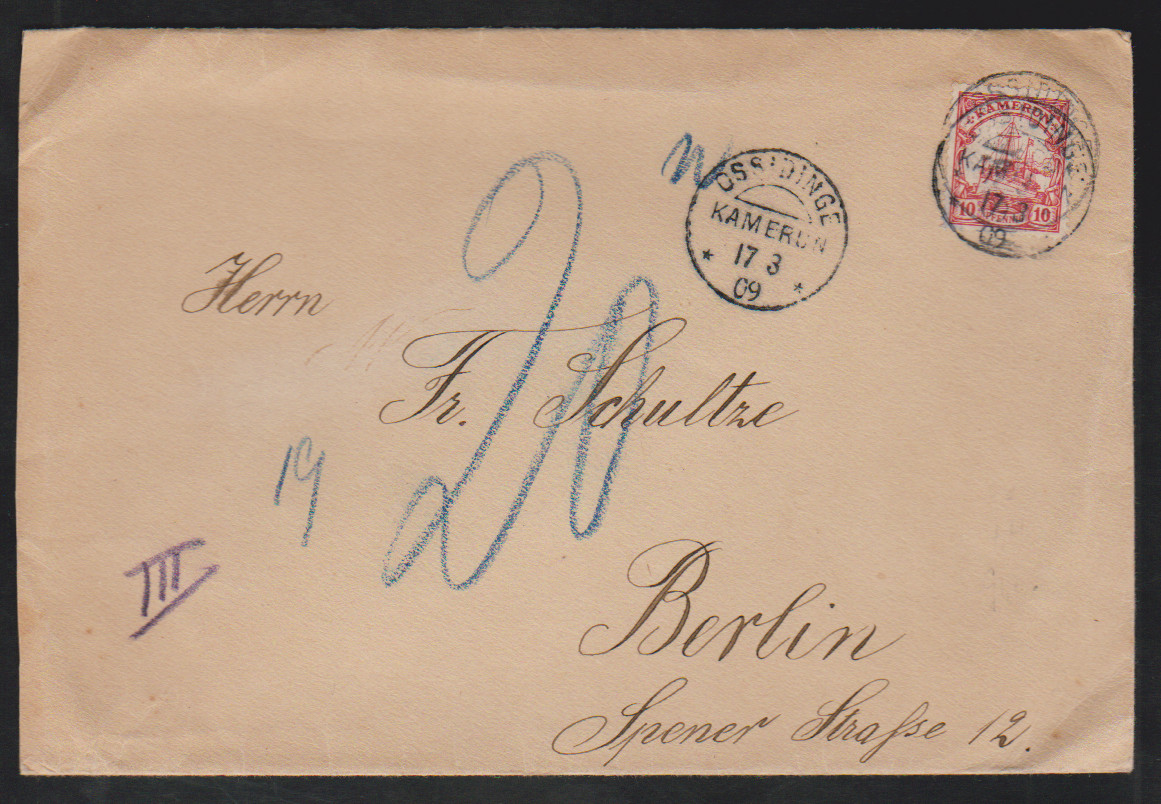 KAMERUN
10 10
PFENNIG
OSSIDINGE
KAMERUN
17 3
09
OSSIDINGE
KAMERUN
17 3
09
Herrn
Fr. Schultze
20
19
III
Berlin
Spener Straſse 12.